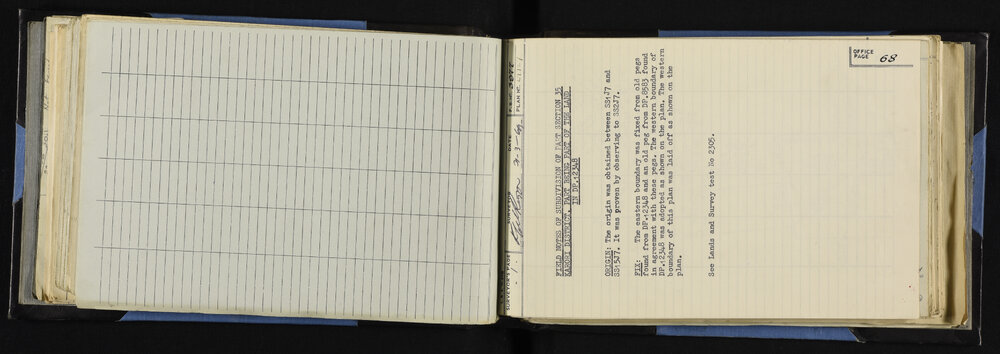 OFFICE
PAGE 68
SURVEYOR'S PAGE
1
SURVEYOR
DATE
2-3-49
PLAN NO.
FIELD NOTES OF SUBDIVISION OF PART SECTION 35
KARORI DISTRICT, PART BEING PART OF THE LAND
IN DP.12348
ORIGIN: The origin was obtained between SS1J7 and
SS15J7. It was proven by observing to SS2J7.
FIX: The eastern boundary was fixed from old pegs
found from DP.12348 and an old peg from DP.8583 found
in agreement with these pegs. The western boundary of
DP.12348 was adopted as shown on the plan. The western
boundary of this plan was laid off as shown on the
plan.
See Lands and Survey test No 2305.